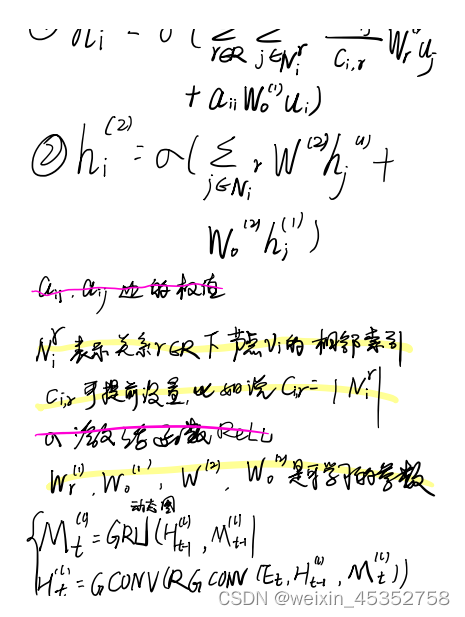 ① h_i = σ(∑_{r∈R} ∑_{j∈N_i^r} / C_{i,r} W_r^{(1)} u_j
+ a_{ii} W_0^{(1)} u_i)
② h_i^{(2)} = σ(∑_{j∈N_i^r} W^{(2)} h_j^{(1)} +
W_0^{(2)} h_i^{(1)})
a_{ii}, a_{ij} 边的权值
N_i^r 表示关系r∈R下节点v_i的相邻索引
C_{i,r} 可提前设置,比如说 C_{i,r} = |N_i^r|
σ 激活函数 ReLU
W_r^{(1)}, W_0^{(1)}, W^{(2)}, W_0^{(2)} 是可学习的参数
动态图
M_t^{(l)} = GRU(H_{t-1}^{(l)}, M_{t-1}^{(l)})
H_t^{(l)} = GCONV(RGCONV(E_t, H_{t-1}^{(l)}, M_t^{(l)}))
CSDN @weixin_45352758